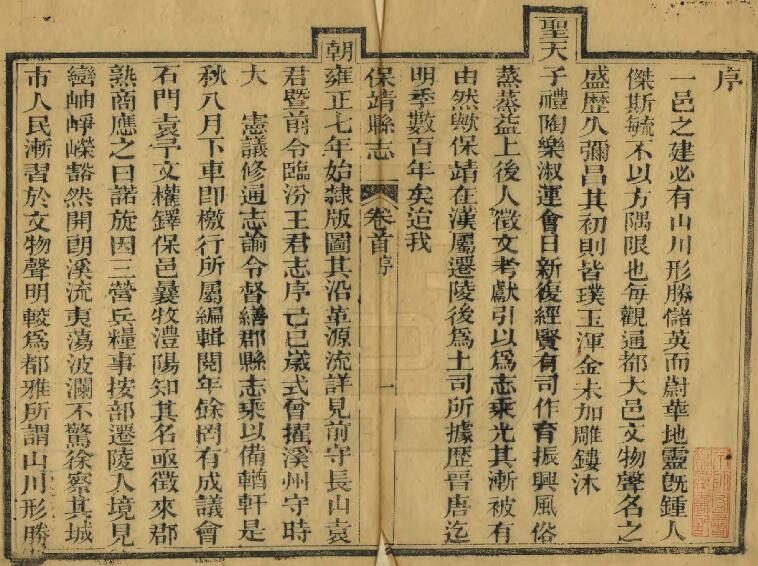 序
一邑之建必有山川形勝儲英而蔚華地靈旣鍾人
傑斯毓不以方隅限也每觀通都大邑文物聲名之
盛歷久彌昌其初則皆璞玉渾金未加雕鏤沐
聖天子禮陶樂淑運會日新復經賢有司作育振興風俗
蒸蒸益上後人徵文考獻引以爲志乘光其漸被有
由然歟保靖在漢屬遷陵後爲土司所據歷晉唐迄
明季數百年矣迨我
保靖縣志 卷首 序 一
朝雍正七年始隸版圖其沿革源流詳見前守長山袁
君暨前令臨汾王君志序己巳歲式會擢溪州守時
大 憲議修通志諭令督繕郡縣志乘以備輶軒是
秋八月下車卽檄行所屬編輯閱年餘罔有成議會
石門袁予文權鐸保邑曩牧澧陽知其名亟徵來郡
熟商應之曰諾旋因三營兵糧事按部遷陵入境見
巒岫崢嶸豁然開朗溪流夷蕩波瀾不驚徐察其城
市人民漸習於文物聲明較爲都雅所謂山川形勝